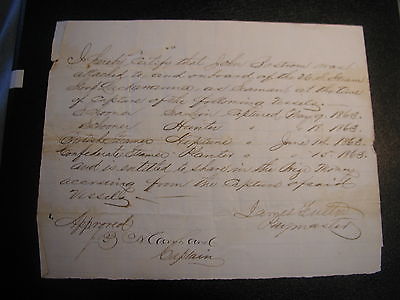 I hereby certify that John Sostrom was
attached to and on board of the U.S. Steam
Sloop Lackawanna, as Seaman at the time
of Capture of the following Vessels
Schooner Captured May 9, 1863.
Schooner Hunter " " 18, 1863.
British Steamer Neptune " June 14, 1863.
Confederate Steamer Planter " " 15, 1863.
and is entitled to share in the Prize Money
accruing from the Capture of said
Vessels
James
Paymaster
Approved
Marchand
Captain